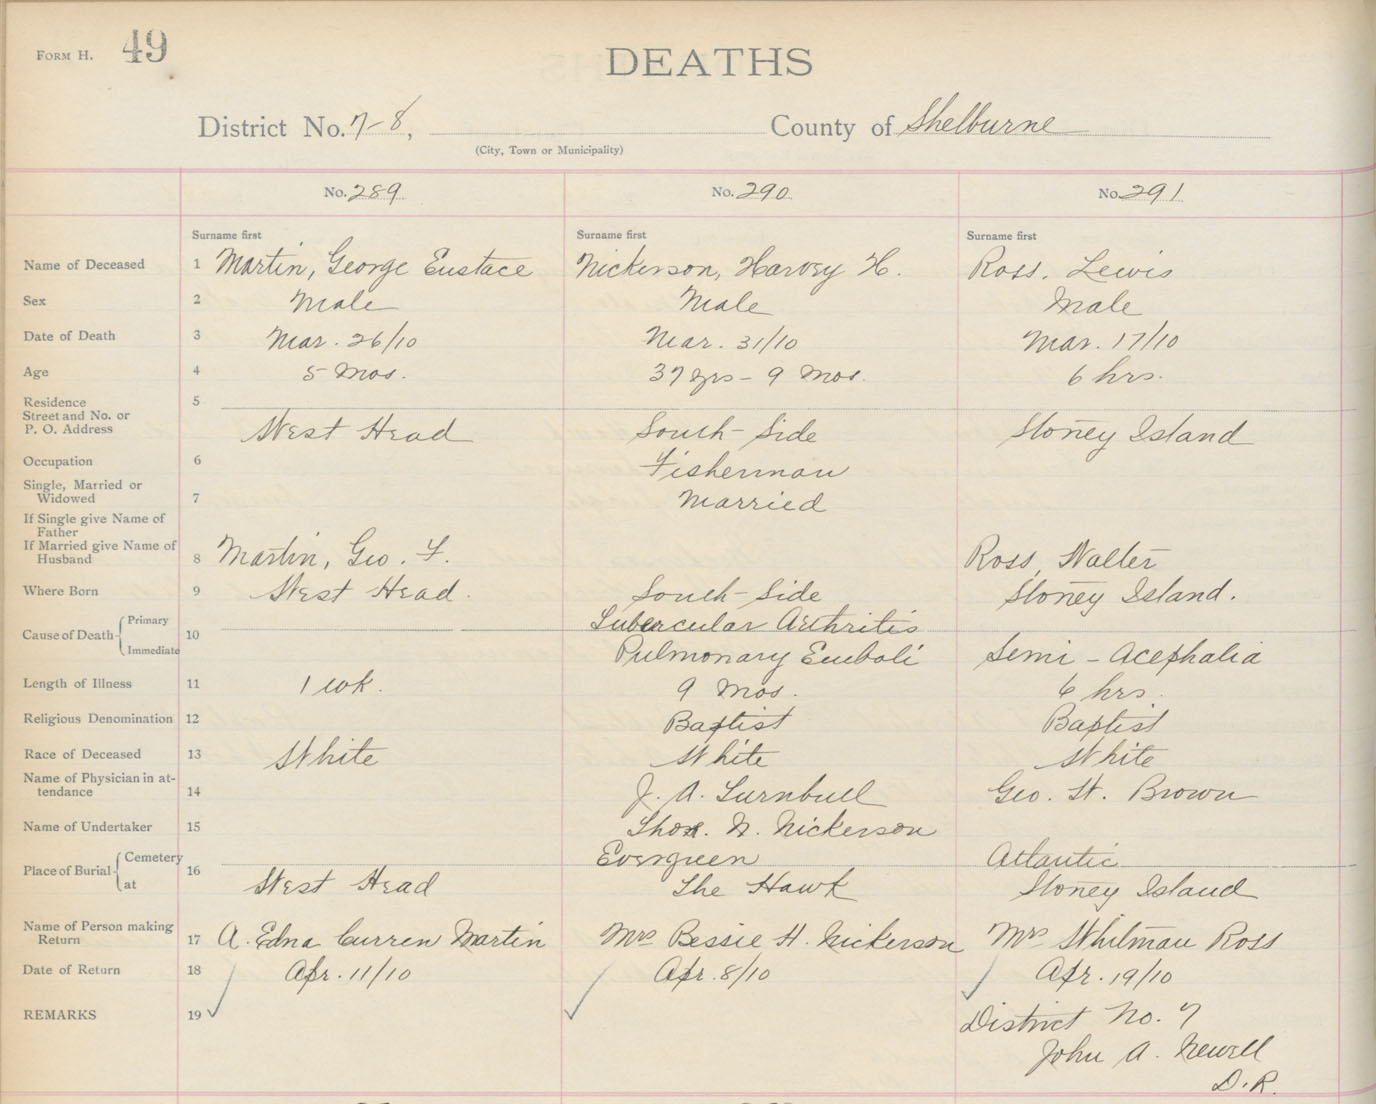 FORM H. 49
DEATHS
District No. 7-8, County of Shelburne
(City, Town or Municipality)
No. 289 No. 290 No. 291
Surname first Surname first Surname first
Name of Deceased 1 Martin, George Eustace Nickerson, Harvey H. Ross, Lewis
Sex 2 Male Male Male
Date of Death 3 Mar. 26/10 Mar. 31/10 Mar. 17/10
Age 4 5 Mos. 37 yrs - 9 Mos. 6 hrs.
Residence 5
Street and No. or
P. O. Address West Head South-Side Stoney Island
Occupation 6 Fisherman
Single, Married or
Widowed 7 Married
If Single give Name of
Father
If Married give Name of
Husband 8 Martin, Geo. F. Ross, Walter
Where Born 9 West Head. South-Side Stoney Island.
Cause of Death Primary 10 Tubercular Arthritis
Immediate Pulmonary Emboli Semi - Acephalia
Length of Illness 11 1 wk. 9 Mos. 6 hrs.
Religious Denomination 12 Baptist Baptist
Race of Deceased 13 White White White
Name of Physician in at-
tendance 14 J. A. Turnbull Geo. W. Brown
Name of Undertaker 15 Thos. N. Nickerson
Place of Burial Cemetery 16 Evergreen Atlantic
at West Head The Hawk Stoney Island
Name of Person making
Return 17 A. Edna Curren Martin Mrs Bessie H. Nickerson Mrs Whitman Ross
Date of Return 18 Apr. 11/10 Apr. 8/10 Apr. 19/10
REMARKS 19 District No. 7
John A. Newell
D.R.